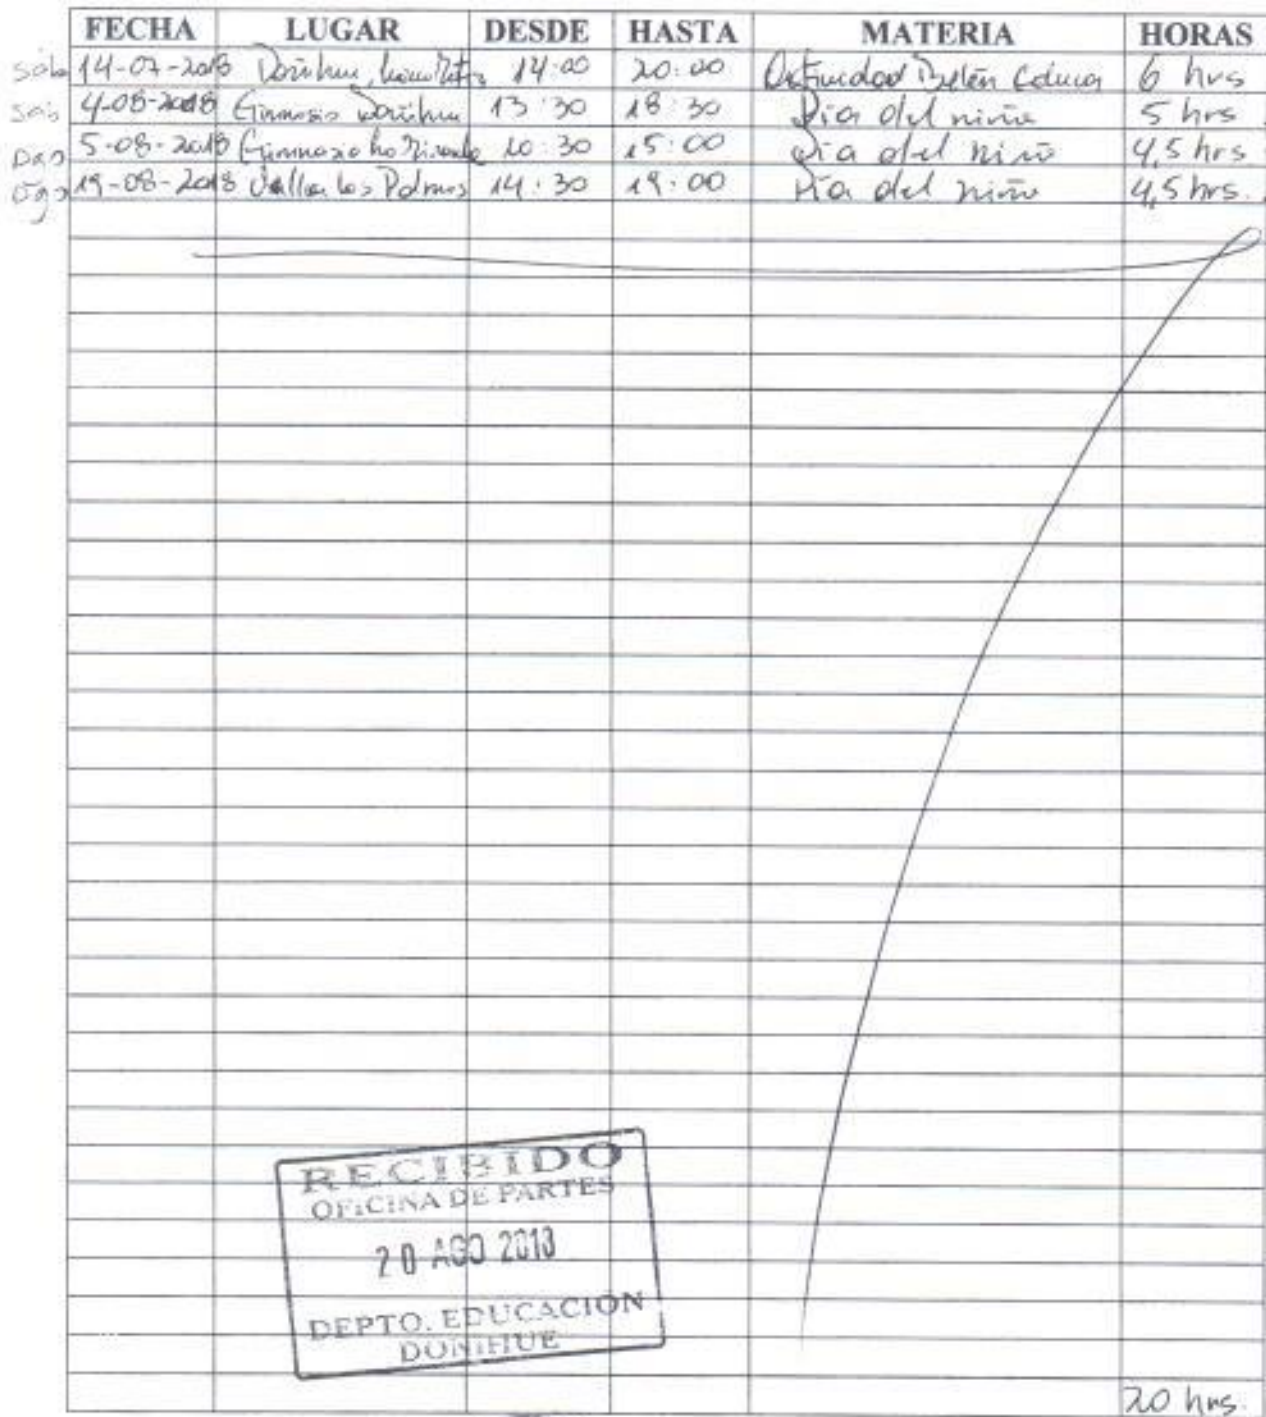 FECHA LUGAR DESDE HASTA MATERIA HORAS
14-07-2018 Doñihue, 14:00 20:00 Actividad Belén Educa 6 hrs
4-08-2018 Gimnasio Doñihue 13:30 18:30 Día del niño 5 hrs
5-08-2018 Gimnasio Lo Miranda 10:30 15:00 Día del niño 4,5 hrs
19-08-2018 Valle los Palmas 14:30 19:00 Día del niño 4,5 hrs.
RECIBIDO
OFICINA DE PARTES
20 AGO 2018
DEPTO. EDUCACION
DOÑIHUE
20 hrs.